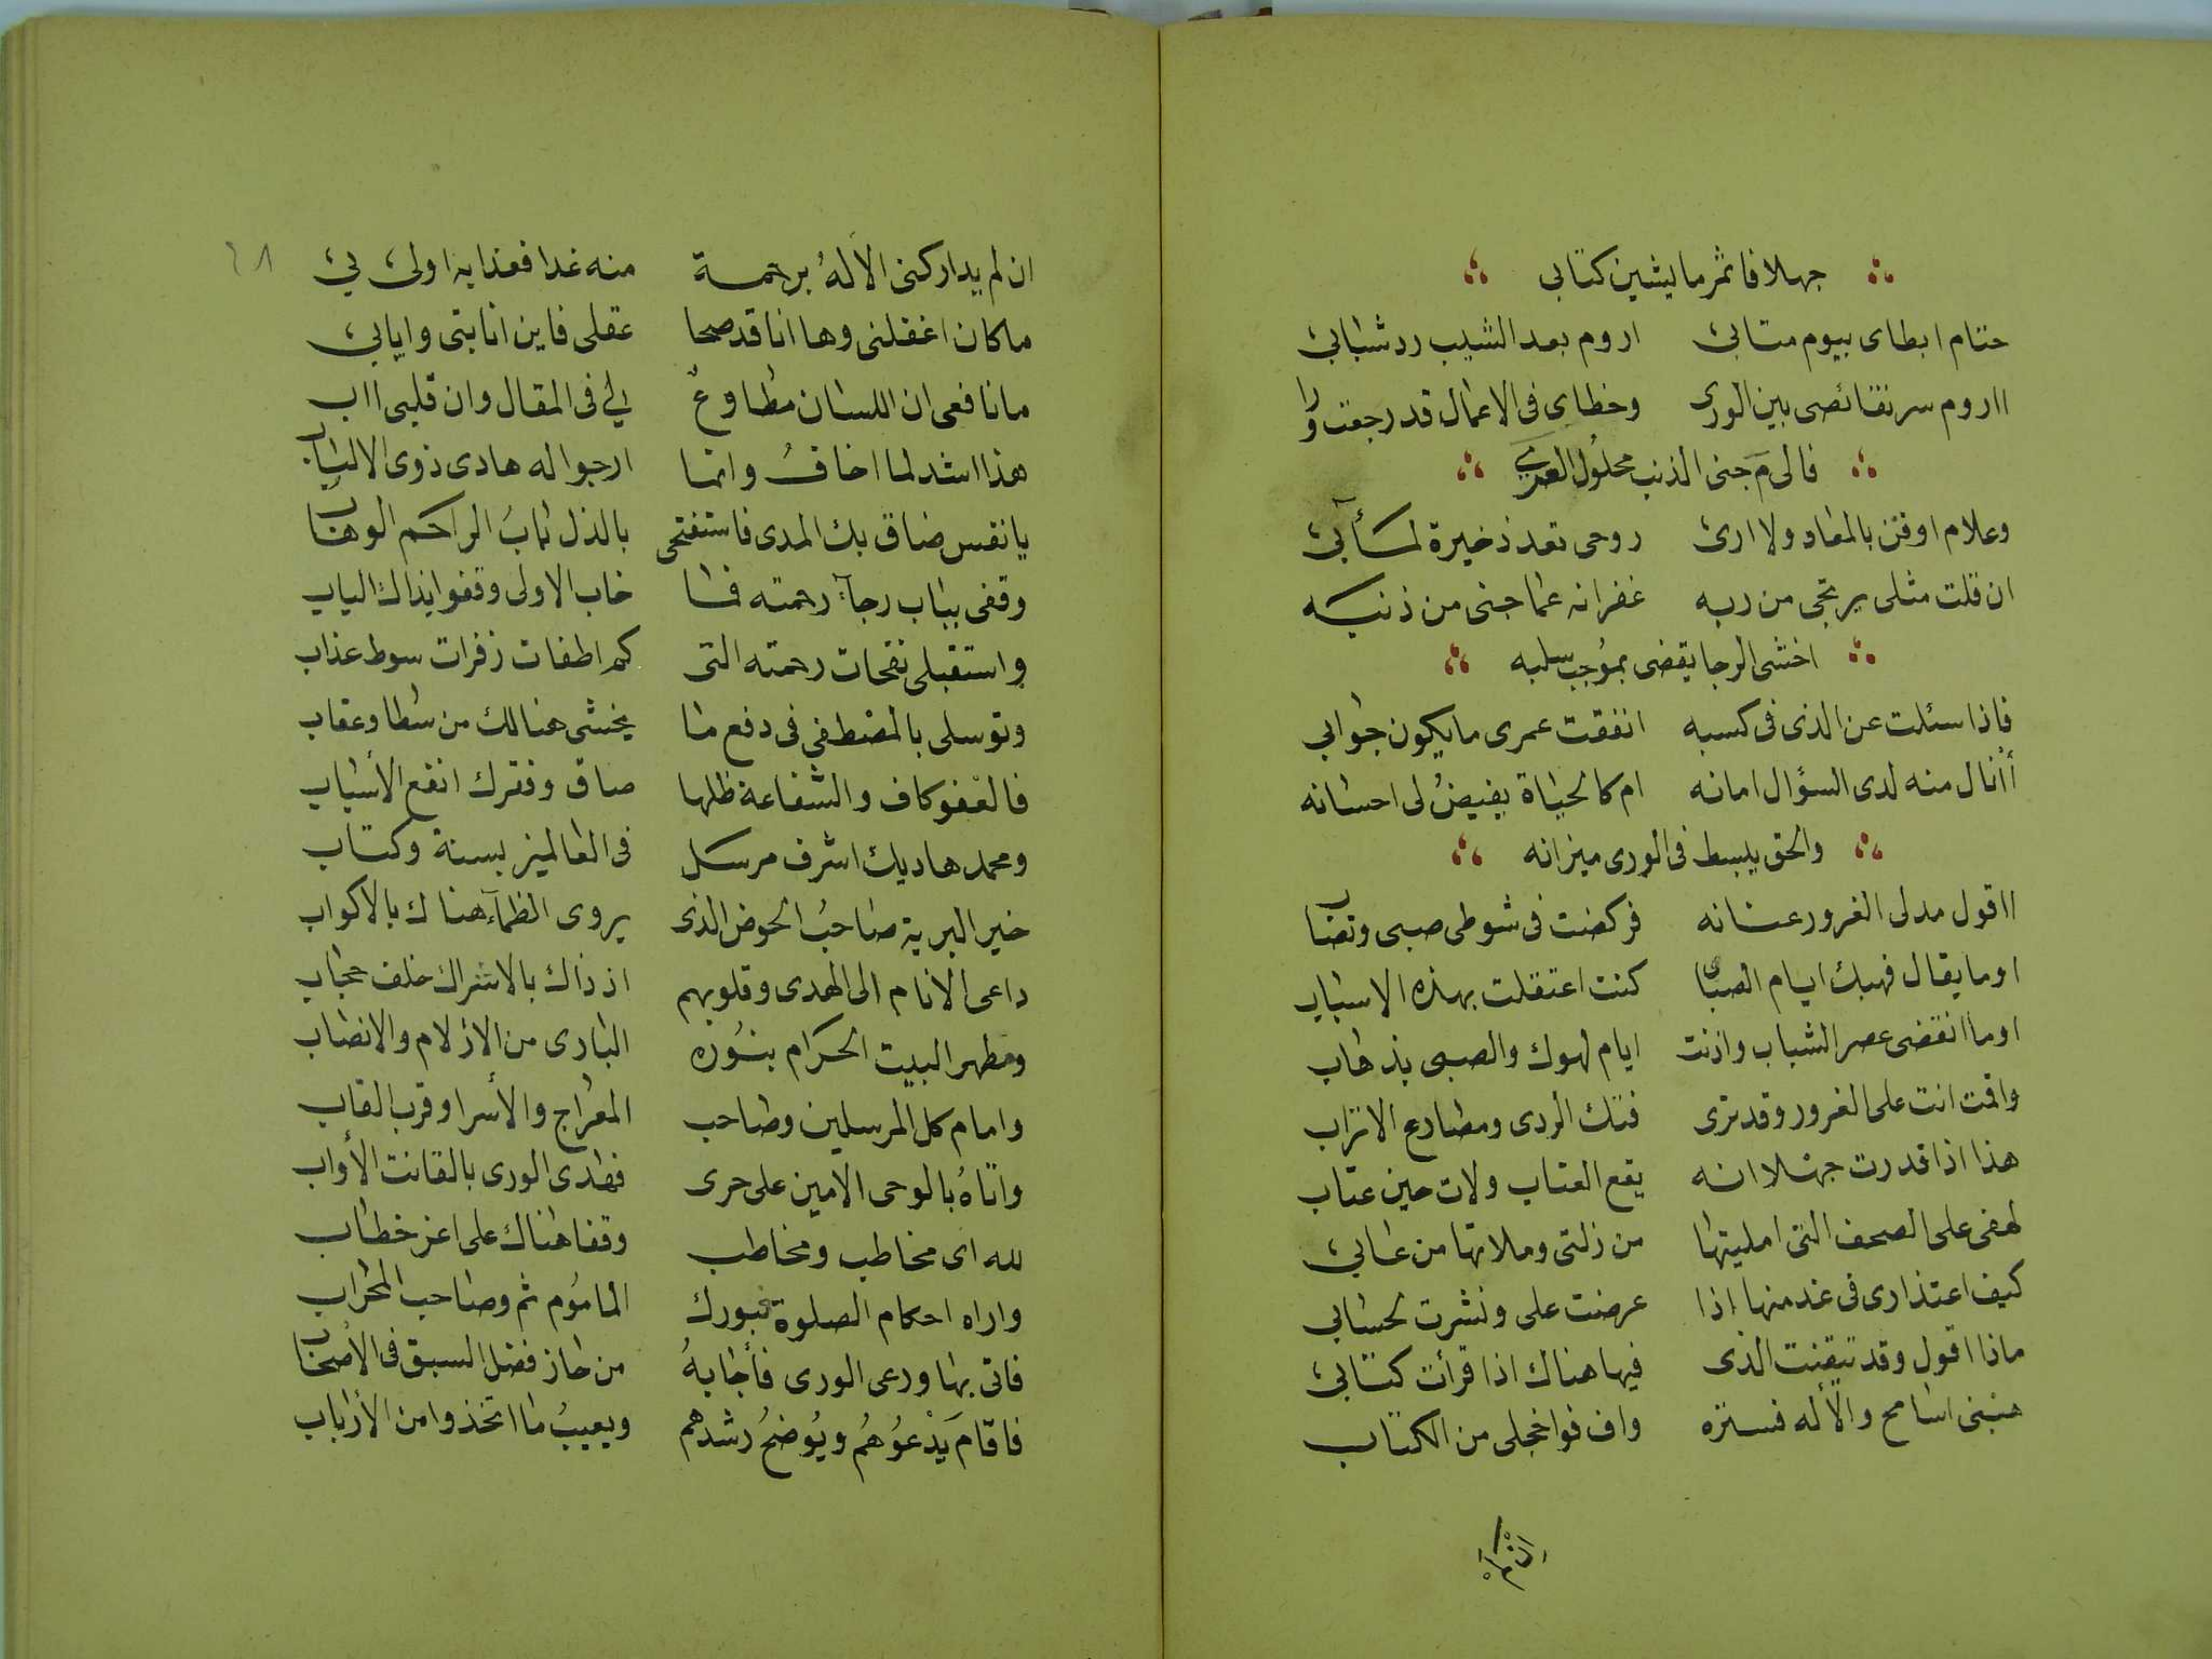 جهلا فاثمر ما يشين كتابى
حتام ابطاى بيوم متابئ اروم بعد الشيب رد شبابئ
ااروم سر نقائصى بين الورى وخطاى فى الاعمال قد رجعت ورا
فالى م جنى الذنب محلول العرى
وعلام اوقن بالمعاد ولا ارئ روحى تعد ذخيرة لمآبئ
ان قلت مثلى يرتجى من ربه غفرانه عما جنى من ذنبه
اخشى الرجا يقضى بموجب سلبه
فاذا سئلت عن الذى فى كسبه انفقت عمرى ما يكون جوابي
أأنال منه لدى السؤال امانه ام كالحياة يفيض لى احسانه
والحق يبسط فى الورى ميزانه
ااقول مد لى الغرور عنانه فركضت فى شوطى صبى وتصاب
اوما يقال فهبك ايام الصبا كنت اعتقلت بهذه الاسباب
اوما انقضى عصر الشباب واذنت ايام لهوك والصبى بذهاب
واقمت انت على الغرور وقد ترى فتك الردى ومصارع الاتراب
هذا اذا قدرت جهلا انه يقع العتاب ولات حين عتاب
لهفى على الصحف التى امليتها من زلتى وملاتها من عابئ
كيف اعتذارى فى غد منها اذا عرضت على ونشرت لحسابي
ماذا اقول وقد تيقنت الذى فيها هناك اذا قرأت كتابئ
هبنى اسامح والأله فستره واف فواخجلى من الكتاب
ان لم يداركنى الاله برحمة منه غدا فعذابه اولئ بئ
ما كان اغفلنى وها انا قد صحا عقلى فاين انابتى وايابئ
ما نافعى ان اللسان مطاوع لي فى المقال وان قلبى ااب
هذا اشد لما اخاف وانما ارجو اله هادى ذوى الالباب
يا نفس ضاق بك المدى فاستفتحى بالذل باب الراحم الوهاب
وقفى بباب رجآء رحمته فما خاب الاولى وقفوا بذاك الباب
واستقبلى نفحات رحمته التى كم اطفات زفرات سوط عذاب
وتوسلى بالمصطفى فى دفع ما يخشى هنالك من سطا وعقاب
فالعفو كاف والشفاعة ظلها صاف وفقرك انفع الأسباب
ومحمد هاديك اشرف مرسل فى العالمين بسنة وكتاب
خير البرية صاحب الحوض الذى يروى الظمآء هناك بالاكواب
داعى الانام الى الهدى وقلوبهم اذ ذاك بالاشراك خلف حجاب
ومطهر البيت الحرام بنوره البادى من الازلام والانصاب
وامام كل المرسلين وصاحب المعراج والأسرا وقرب القاب
واتاه بالوحى الامين على حرى فهدى الورى بالقانت الأواب
لله اى مخاطب ومخاطب وقفا هناك على اعز خطاب
واراه احكام الصلوة فبورك المأموم ثم وصاحب المحراب
فاتى بها ودعى الورى فأجابه من حاز فضل السبق فى الأصحاب
فاقام يدعوهم ويوضح رشدهم ويعيب ما اتخذوا من الأرباب